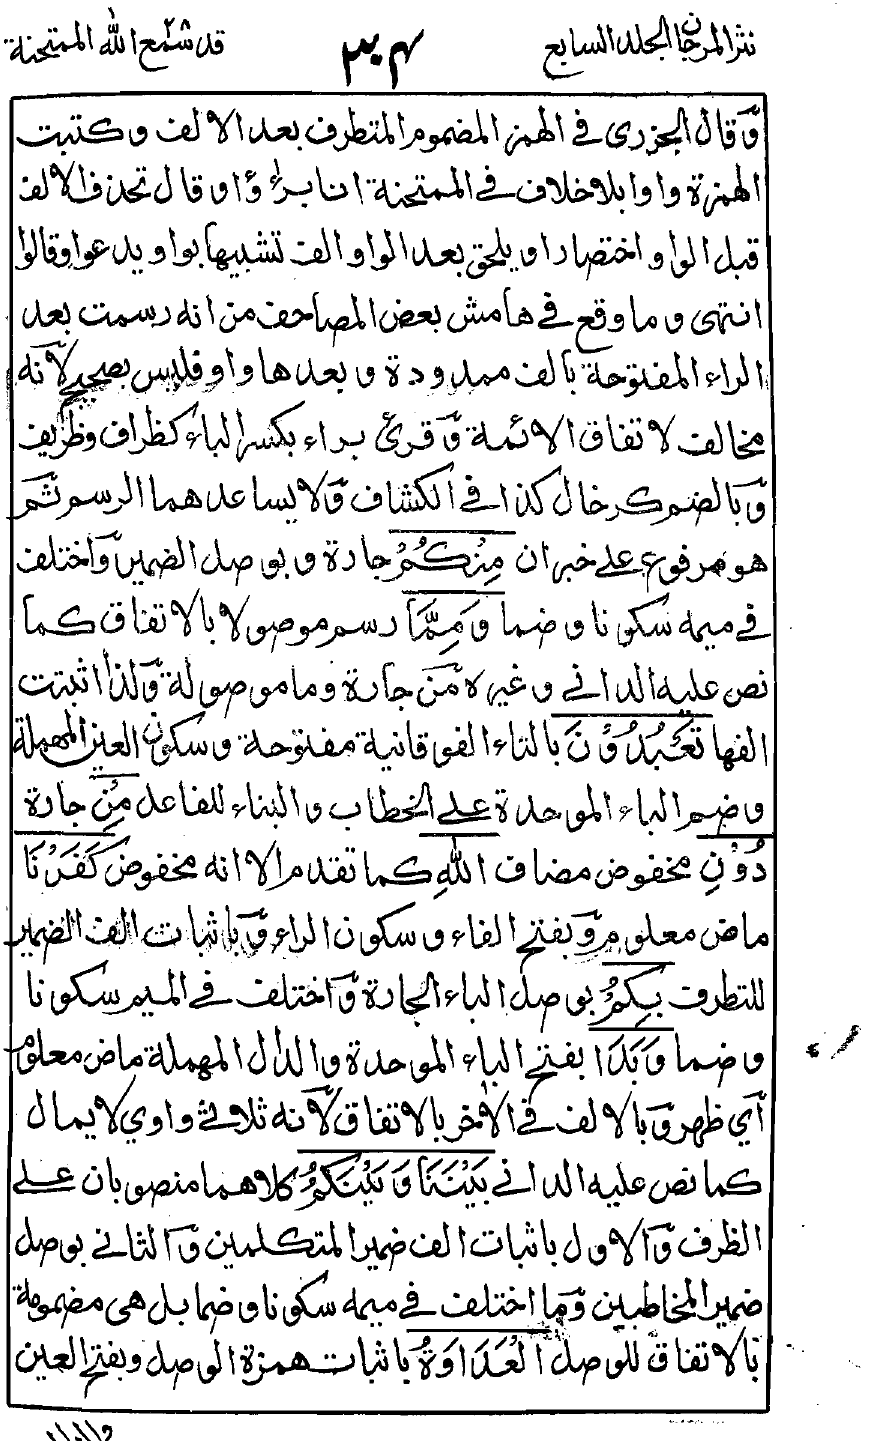 نثر المرجان الجلد السابع
۳۰۴
قد سمع الله ۲۸ الممتحنة
وَقال الجزرى فى الهمز المضموم المتطرف بعد الالف وكتبت
الهمزة واوا بلا خلاف فى الممتحنة انا برٰۤءٰؤا وقال تحذف الالف
قبل الواو اختصارا ويلحق بعد الواو الف تشبيها بواو يدعوا وقالوا
انتهى وما وقع فى هامش بعض المصاحف من انه رسمت بعد
الراء المفتوحة بالف ممدودة وبعدها واو فليس بصحيح لانّه
مخالف لاتفاق الائمة وَقرئ براء بكسر الباء كظراف وظريف
وَبالضم كرخال كذا فى الكشاف وَلا يساعدهما الرسم ثم
هو مرفوع على خبر ان مِنْكُمْ جارة وبوصل الضمير وَاختلف
فى ميمه سكونا وضما وَمِمَّا رسم موصولا بالاتفاق كما
نص عليه الدانى وغيره مّن جارة وما موصولة وَلذا اثبتت
الفها تَعْبُدُوْنَ بالتاء الفوقانية مفتوحة وسكون العين المهملة
وضم الباء الموحدة على الخطاب والبناء للفاعل مِنْ جارة
دُوْنِ مخفوض مضاف اللهِ كما تقدم الا انه مخفوض كَفَرْنَا
ماض معلوم وَبفتح الفاء وسكون الراء وَباثبات الف الضمير
للتطرف بِكُمْ بوصل الباء الجارة وَاختلف فى الميم سكونا
وضما وَبَدَا بفتح الباء الموحدة والدال المهملة ماض معلوم
اى ظهر وَبالالف فى الاٰخر بالاتفاق لانّه ثلاثى واوي لا يمال
كما نص عليه الدانى بَيْنَنَا وَبَيْنَكُمْ كلاهما منصوبان على
الظرف وَالاول باثبات الف ضمير المتكلمين وَالثانى بوصل
ضمير المخاطبين وَما اختلف فى ميمه سكونا وضما بل هى مضمومة
بالاتفاق للوصل الْعَدَاوَةُ باثبات همزة الوصل وبفتح العين